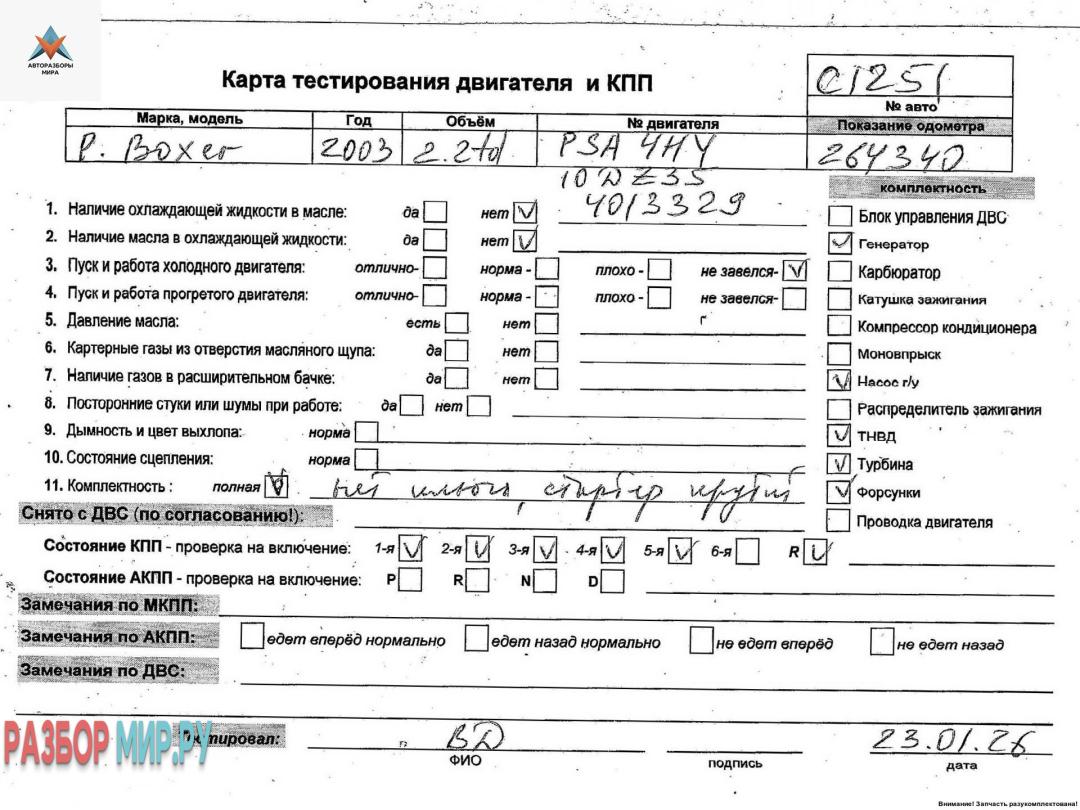 АВТОРАЗБОРЫ
МИРА
Карта тестирования двигателя и КПП
C1251
№ авто
Марка, модель Год Объём № двигателя Показание одометра
P. Boxer 2003 2.2td PSA 4HY 264340
10DZ35
4013329
комплектность
1. Наличие охлаждающей жидкости в масле: да нет V
Блок управления ДВС
2. Наличие масла в охлаждающей жидкости: да нет V
Генератор
3. Пуск и работа холодного двигателя: отлично- норма - плохо - не завелся- V
Карбюратор
4. Пуск и работа прогретого двигателя: отлично- норма - плохо - не завелся-
Катушка зажигания
5. Давление масла: есть нет
Компрессор кондиционера
6. Картерные газы из отверстия масляного щупа: да нет
Моновпрыск
7. Наличие газов в расширительном бачке: да нет
Насос г/у
8. Посторонние стуки или шумы при работе: да нет
Распределитель зажигания
9. Дымность и цвет выхлопа: норма
ТНВД
10. Состояние сцепления: норма
Турбина
11. Комплектность : полная V нет ключа, стартер крутит
Форсунки
Снято с ДВС (по согласованию!):
Проводка двигателя
Состояние КПП - проверка на включение: 1-я V 2-я V 3-я V 4-я V 5-я V 6-я R V
Состояние АКПП - проверка на включение: P R N D
Замечания по МКПП:
Замечания по АКПП: едет вперёд нормально едет назад нормально не едет вперёд не едет назад
Замечания по ДВС:
РАЗБОР МИР.РУ
Тестировал: ВД 23.01.26
ФИО подпись дата
Внимание! Запчасть разукомплектована!